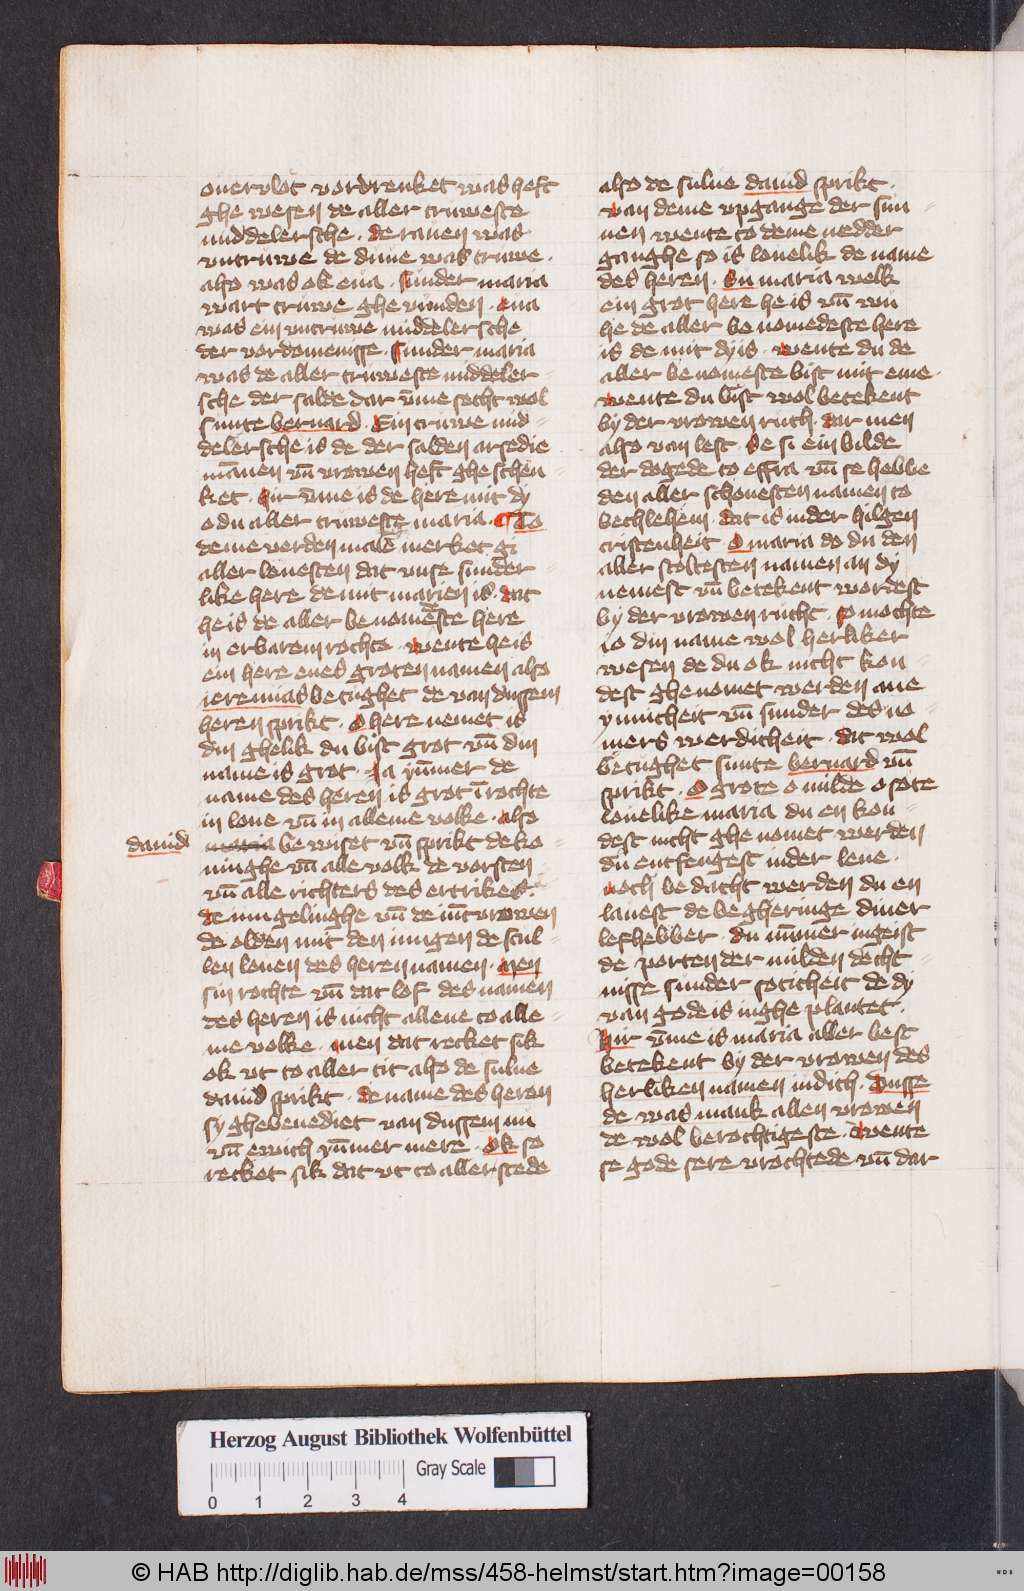 ouervlot vordrenket was heft
ghe wesen de aller truweste
middelersche . de rauen was
vntruwe de duue was truwe .
also was ok eua . Sunder maria
wart truwe ghe vunden . eua
was ein vntruwe middelersche
der vordomenisse . Sunder maria
was de aller truweste middeler
sche der salde dar v̄me secht wol
sunte bernard . Ein truwe mid
delersche is de der salden arsedie
mannen vn̄ vrowen heft ghe schen
ket . hir v̄me is de here mit dy
o du aller truweste maria . To
deme verden male merket gi
aller leuesten dat vnse sunder
like here de mit marien is . dat
he is de aller benomeste here
in erbarem rochte . wente he is
ein here enes groten namen also
ieremias betughet de van dussem
heren sprikt . O here nemet is
din ghelik du bist grot vn̄ din
name is grot . Ja ym̄mer de
name des heren is grot ī rochte
in loue vn̄ in alleme volke . also
dauid
be wiset vn̄ sprikt de ko
ninghe vn̄ alle volk de vorsten
vn̄ alle richters des ertrikes .
de iungelinghe vn̄ de iūcvrowen
de olden mit den iungen de scul
len louen des heren namen . wen
sin rochte vn̄ dat lof des namen
des heren is nicht allene to alle
me volke . men dat recket sik
ok vt to aller tit also de sulue
dauid sprikt . de name des heren
sy ghebenediet van dussem nu
vn̄ ewich ym̄mer mere . ok so
recket sik dat vt to aller stede
also de sulue dauid sprikt .
van deme vpgange der sun
nen wente to deme nedder
ganghe so is louelik de name
des heren . Su maria welk
ein grot here he is vn̄ wu
he de aller be nomedeste here
is de mit dy is . wente du de
aller be nomeste bist mit eme .
wente du bist wol betekent
by der vrowen ruth . dar men
also van lest . Se si ein bilde
der dogede to effra vn̄ se hebbe
den aller schonesten namen to
bethlehem . dat is in der hilgen
cristenheit . O maria do du den
aller stoltesten namen an dy
nemest vn̄ betekent wordest
by der vrowen rucht . So mochte
io din name wol herliker
wesen de du ok nicht kon
dest ghenomet werden ane
ynnicheit vn̄ sunder des no
mers werdicheit . dat wol
betughet sunte bernard vn̄
sprikt . O grote o milde o sote
louelike maria du en kon
dest nicht ghe nomet werden
du entfengest in der leue .
noch be dacht werden du en
lauest de be gheringe diner
lefhebber . du nūmer ingeist
de porten der milden decht
nisse sunder soticheit de dy
van gode is in ghe plantet .
Hir v̄me is maria aller best
betekent by der vrowen des
herliken namen iudich . Dusse
de was mank allen vrowen
de wol berochtigeste . Wente
se gode sere vrochtede vn̄ dar
Herzog August Bibliothek Wolfenbüttel
Gray Scale
0 1 2 3 4
© HAB http://diglib.hab.de/mss/458-helmst/start.htm?image=00158